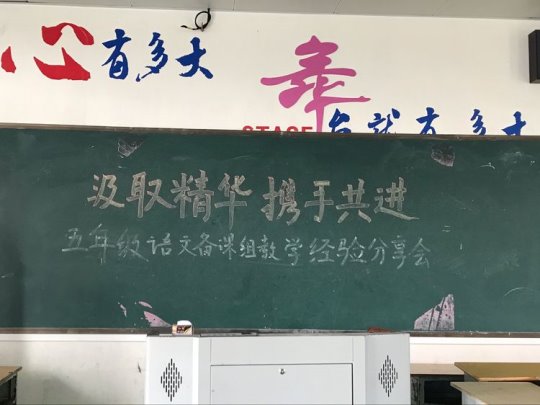 心有多大
舞
STAGE
台就有多大
汲取精华 携手共进
五年级语文备课组教学经验分享会